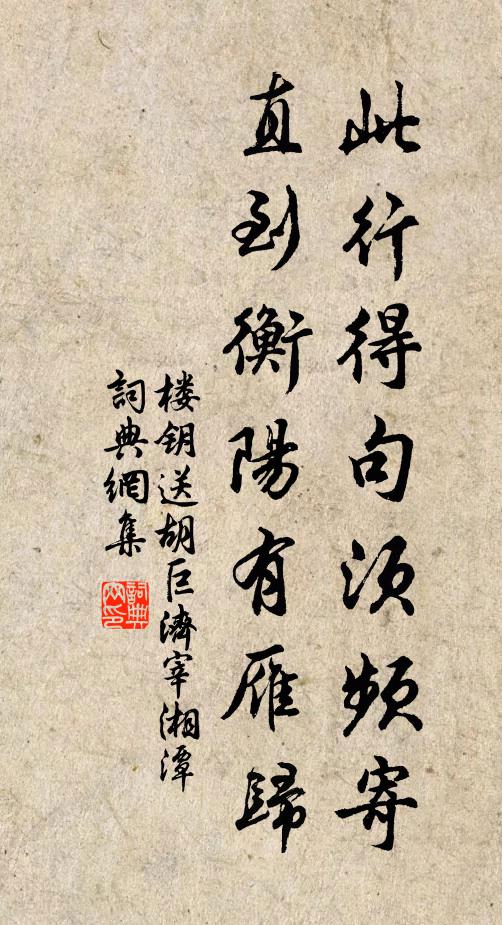 此行得句须频寄
直到衡陽有雁歸
楼钥送胡巨濟宰湘潭
詞典網集
詞典
网印